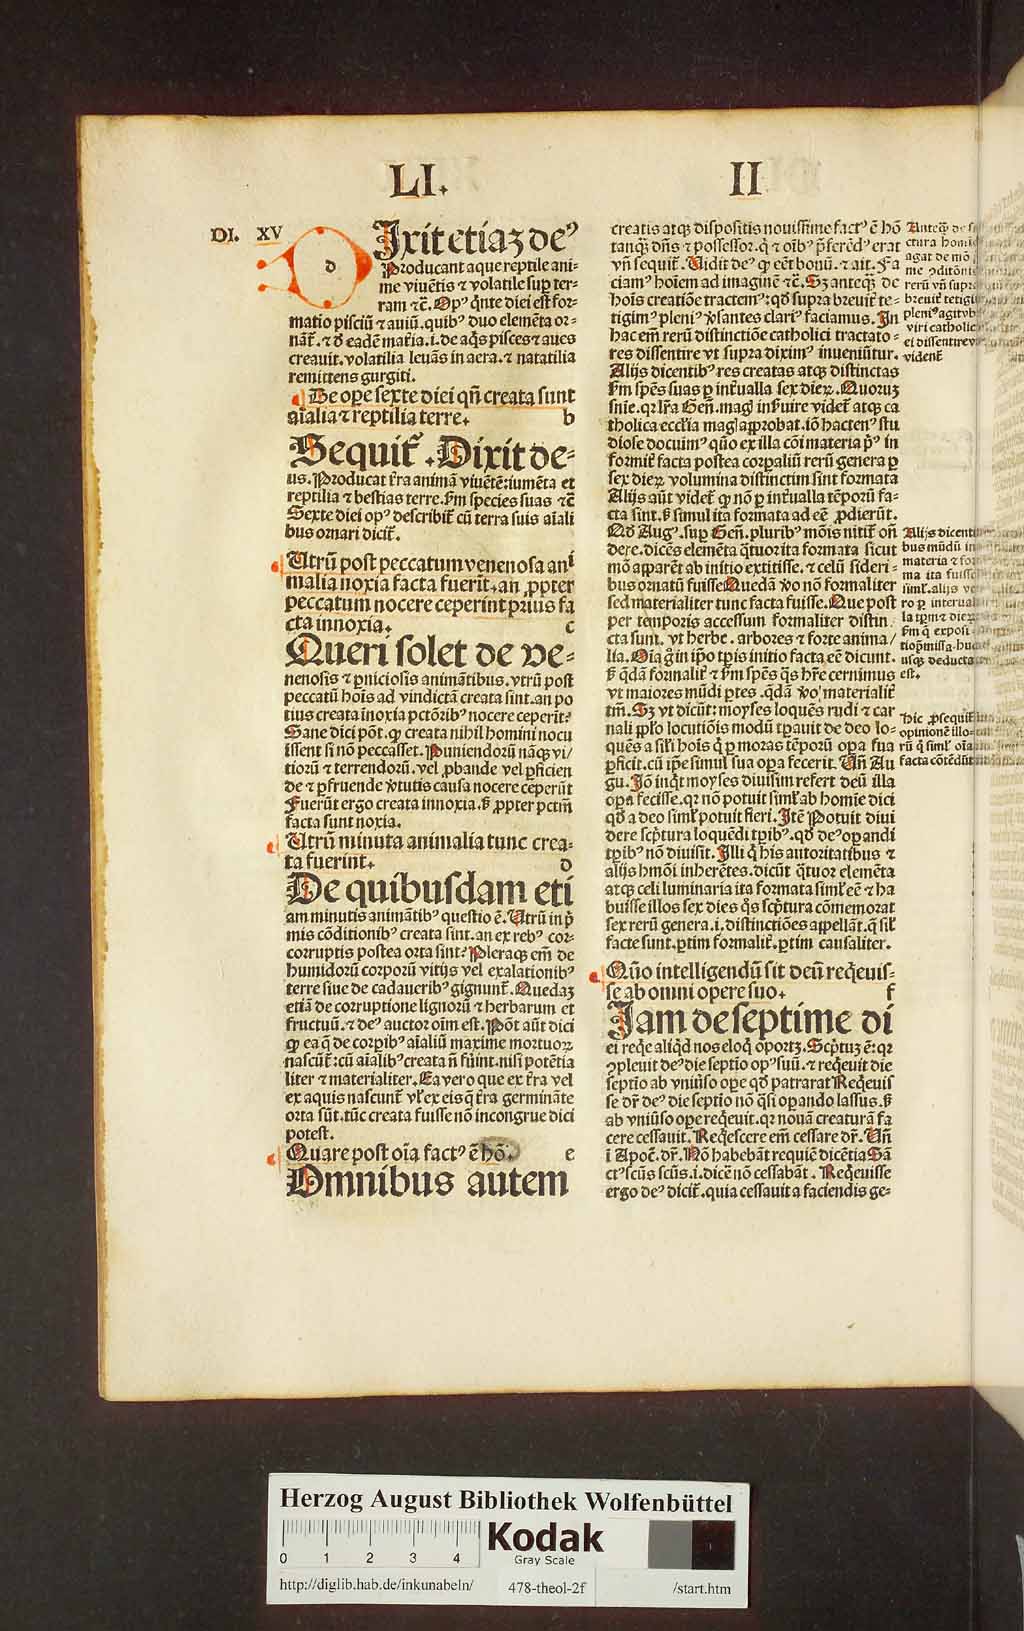 LI. II
DI. XV
d
Ixit etiaꝫ deꝰ
Producant aque reptile ani-
me viuētis ⁊ volatile suꝑ ter-
ram ⁊c̄. Opꝰ q̄nte diei est for-
matio pisciū ⁊ auiū. quibꝰ duo elemēta or-
creauit. volatilia leuās in aera. ⁊ natatilia
remittens gurgiti.
De oꝑe sexte diei qn̄ creata sunt
aīalia ⁊ reptilia terre. b
Sequit᷑. Dixit de-
us. Producat t̄ra animā viuētē: iumēta et
reptilia ⁊ bestias terre. ẜm species suas ⁊c̄
Sexte diei opꝰ describit᷑ cū terra suis aīali
bus ornari dicit᷑.
Utrū post peccatum venenosa ani
malia noxia facta fuerit. an ꝓpter
peccatum nocere ceperint prius fa
cta innoxia. c
Queri solet de ve-
nenosis ⁊ ꝑniciosis animātibus. vtrū post
peccatū hoīs ad vindictā creata sint. an po
tius creata inoxia pctōribꝰ nocere ceperīt?
Sane dici pōt. ꝙ creata nihil homini nocu
issent si nō peccasset. Puniendorū nāqꝫ vi/
tiorū ⁊ terrendorū. vel ꝓbande vel ꝑficien
de ⁊ ꝑfruende v̓tutis causa nocere ceperūt
Fuerūt ergo creata innoxia. ẜ ꝓpter pctm̄
facta sunt noxia.
Utrū minuta animalia tunc crea-
ta fuerint. d
De quibusdam eti
am minutis animātibꝰ questio ē. Utrū in p̄
mis cōditionibꝰ creata sint. an ex rebꝰ cor-
corruptis postea orta sint? Pleraqꝫ em̄ de
humidorū corporū vitijs vel exalationibꝰ
terre siue de cadaueribꝰ gignunt᷑. Quedaꝫ
etiā de corruptione lignorū ⁊ herbarum et
fructuū. ⁊ deꝰ auctor oīm est. Pōt aūt dici
ꝙ ea q̄ de corpibꝰ aīaliū maxime mortuoꝝ
nascūt᷑: cū aīalibꝰ creata nō fūint. nisi potētia
liter ⁊ materialiter. Ea vero que ex t̄ra vel
ex aquis nascunt᷑ vl̓ ex eis q̄ t̄ra germināte
orta sūt. tūc creata fuisse nō incongrue dici
potest.
Quare post oīa factꝰ ē hō. e
Omnibus autem
creatis atqꝫ dispositis nouissime factꝰ ē hō
tanqꝫ dn̄s ⁊ possessor. q̄ ⁊ oībꝰ p̄ferēdꝰ erat
vn̄ sequit᷑. Uidit deꝰ ꝙ eēt bonū. ⁊ ait. Fa
ciamꝰ hoīem ad imaginē ⁊c̄. Sꝫ anteqꝫ de
hoīs creatiōe tractemꝰ: qd̄ supra breuit᷑ te-
tigimꝰ pleniꝰ v̓santes clariꝰ faciamus. In
hac em̄ rerū distinctiōe catholici tractato-
res dissentire vt supra diximꝰ inueniūtur.
Alijs dicentibꝰ res creatas atqꝫ distinctas
ẜm spēs suas ꝑ int᷑ualla sex dieꝝ. Quoruꝫ
tholica eccl̓ia magꝭ approbat. iō hactenꝰ stu
diose docuimꝰ quō ex illa cōi materia pꝰ in
formit᷑ facta postea corꝑaliū rerū genera ꝑ
sex dieꝝ volumina distinctim sint formata
Alijs aūt videt᷑ ꝙ nō ꝑ int᷑ualla tēporū fa-
cta sint. ẜ simul ita formata ad eē ꝓdierūt.
Qd̄ Augꝰ. suꝑ Gen̄. pluribꝰ mōis nitit᷑ on̄
dere. dicēs elemēta q̄tuor ita formata sicut
mō apparēt ab initio extitisse. ⁊ celū sideri-
bus ornatū fuisse Quedā v̓o nō formaliter
sed materialiter tunc facta fuisse. Que post
per temporis accessum formaliter distin
cta sunt. vt herbe. arbores ⁊ forte anima/
lia. Oīa g̊ in ip̄o tꝑis initio facta eē dicunt.
ẜ q̄dā formalit᷑ ⁊ ẜm spēs q̄s hr̄e cernimus
vt maiores mūdi ꝑtes. q̄dā v̓o materialit᷑
tm̄. Sꝫ vt dicūt: moyses loquēs rudi ⁊ car
nali ppl̓o locutiōis modū tꝑauit de deo lo-
quēs a sil̓i hoīs q̄ ꝑ moras tēporū oꝑa sua
ꝑficit. cū ip̄e simul sua oꝑa fecerit. Un̄ Au
gu. Iō inq̄t moyses diuisim refert deū illa
oꝑa fecisse. qꝛ nō potuit siml̓ ab homīe dici
qd̄ a deo siml̓ potuit fieri. Itē Potuit diui
dere scp̄tura loquēdi tꝑibꝰ. qd̄ deꝰ oꝑandi
tꝑibꝰ nō diuisit. Illi q̄ his autoritatibus ⁊
alijs hmōi inherētes. dicūt q̄tuor elemēta
atqꝫ celi luminaria ita formata siml̓ eē ⁊ ha
buisse illos sex dies q̄s scp̄tura cōmemorat
sex rerū genera. i. distinctiōes appellāt. q̄ sil̓
facte sunt. ꝑtim formalit᷑. ꝑtim causaliter.
Quō intelligendū sit deū req̄euis-
se ab omni opere suo. f
Iam de septime di
ei req̄e aliq̄d nos eloq̄ oportꝫ. Scp̄tuꝫ ē: qꝛ
ꝯpleuit deꝰ die septio opꝰ suū. ⁊ req̄euit die
septio ab vniūso oꝑe qd̄ patrarat Req̄euis
se dr̄ deꝰ die septio nō q̄si oꝑando lassus. ẜ
ab vniūso oꝑe req̄euit. qꝛ nouā creaturā fa
cere cessauit. Req̄escere em̄ cessare dr̄. Un̄
ī Apoc̄. dr̄. Nō habebāt requiē dicētia Sā
ctꝰ scūs scūs. i. dicē nō cessabāt. Req̄euisse
ergo deꝰ dicit᷑. quia cessauit a faciendis ge-
Anteqꝫ de
ctura homīs
agat de mō
me ꝯditōnis
rerū vn̄ supra
breuit᷑ tetigit
pleniꝰ agit vbi
viri catholici
ei dissentire
vident᷑
Alijs dicenti
bus mūdū in
materia ⁊ for
ma ita fuisse
siml̓. alijs ve
ro ꝑ interual
la tꝑm ⁊ dieꝝ
ẜm q̄ exposi
tio p̄missa. huc
usqꝫ deducta
est.
Hic ꝓsequit᷑
opinionē illo-
rū q̄ siml̓ oīa
facta cōtēdūt
Herzog August Bibliothek Wolfenbüttel
0 1 2 3 4
Kodak
Gray Scale
http://diglib.hab.de/inkunabeln/ 478-theol-2f /start.htm